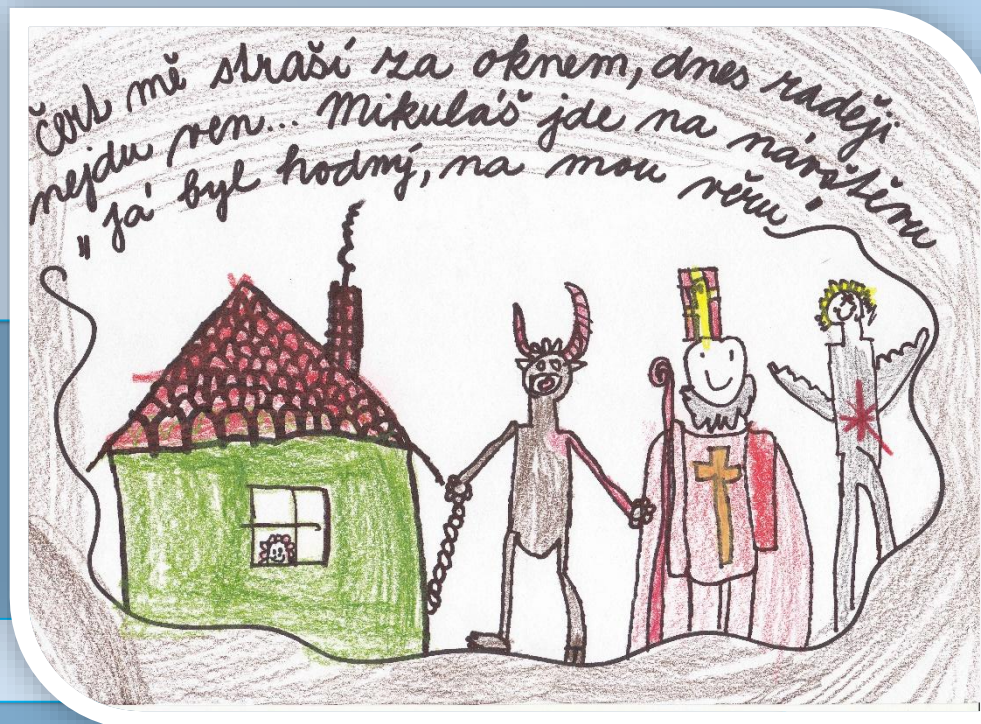 Čert mě straší za oknem, dnes raději
nejdu ven... Mikuláš jde na návštěvu
"Já byl hodný, na mou věru"